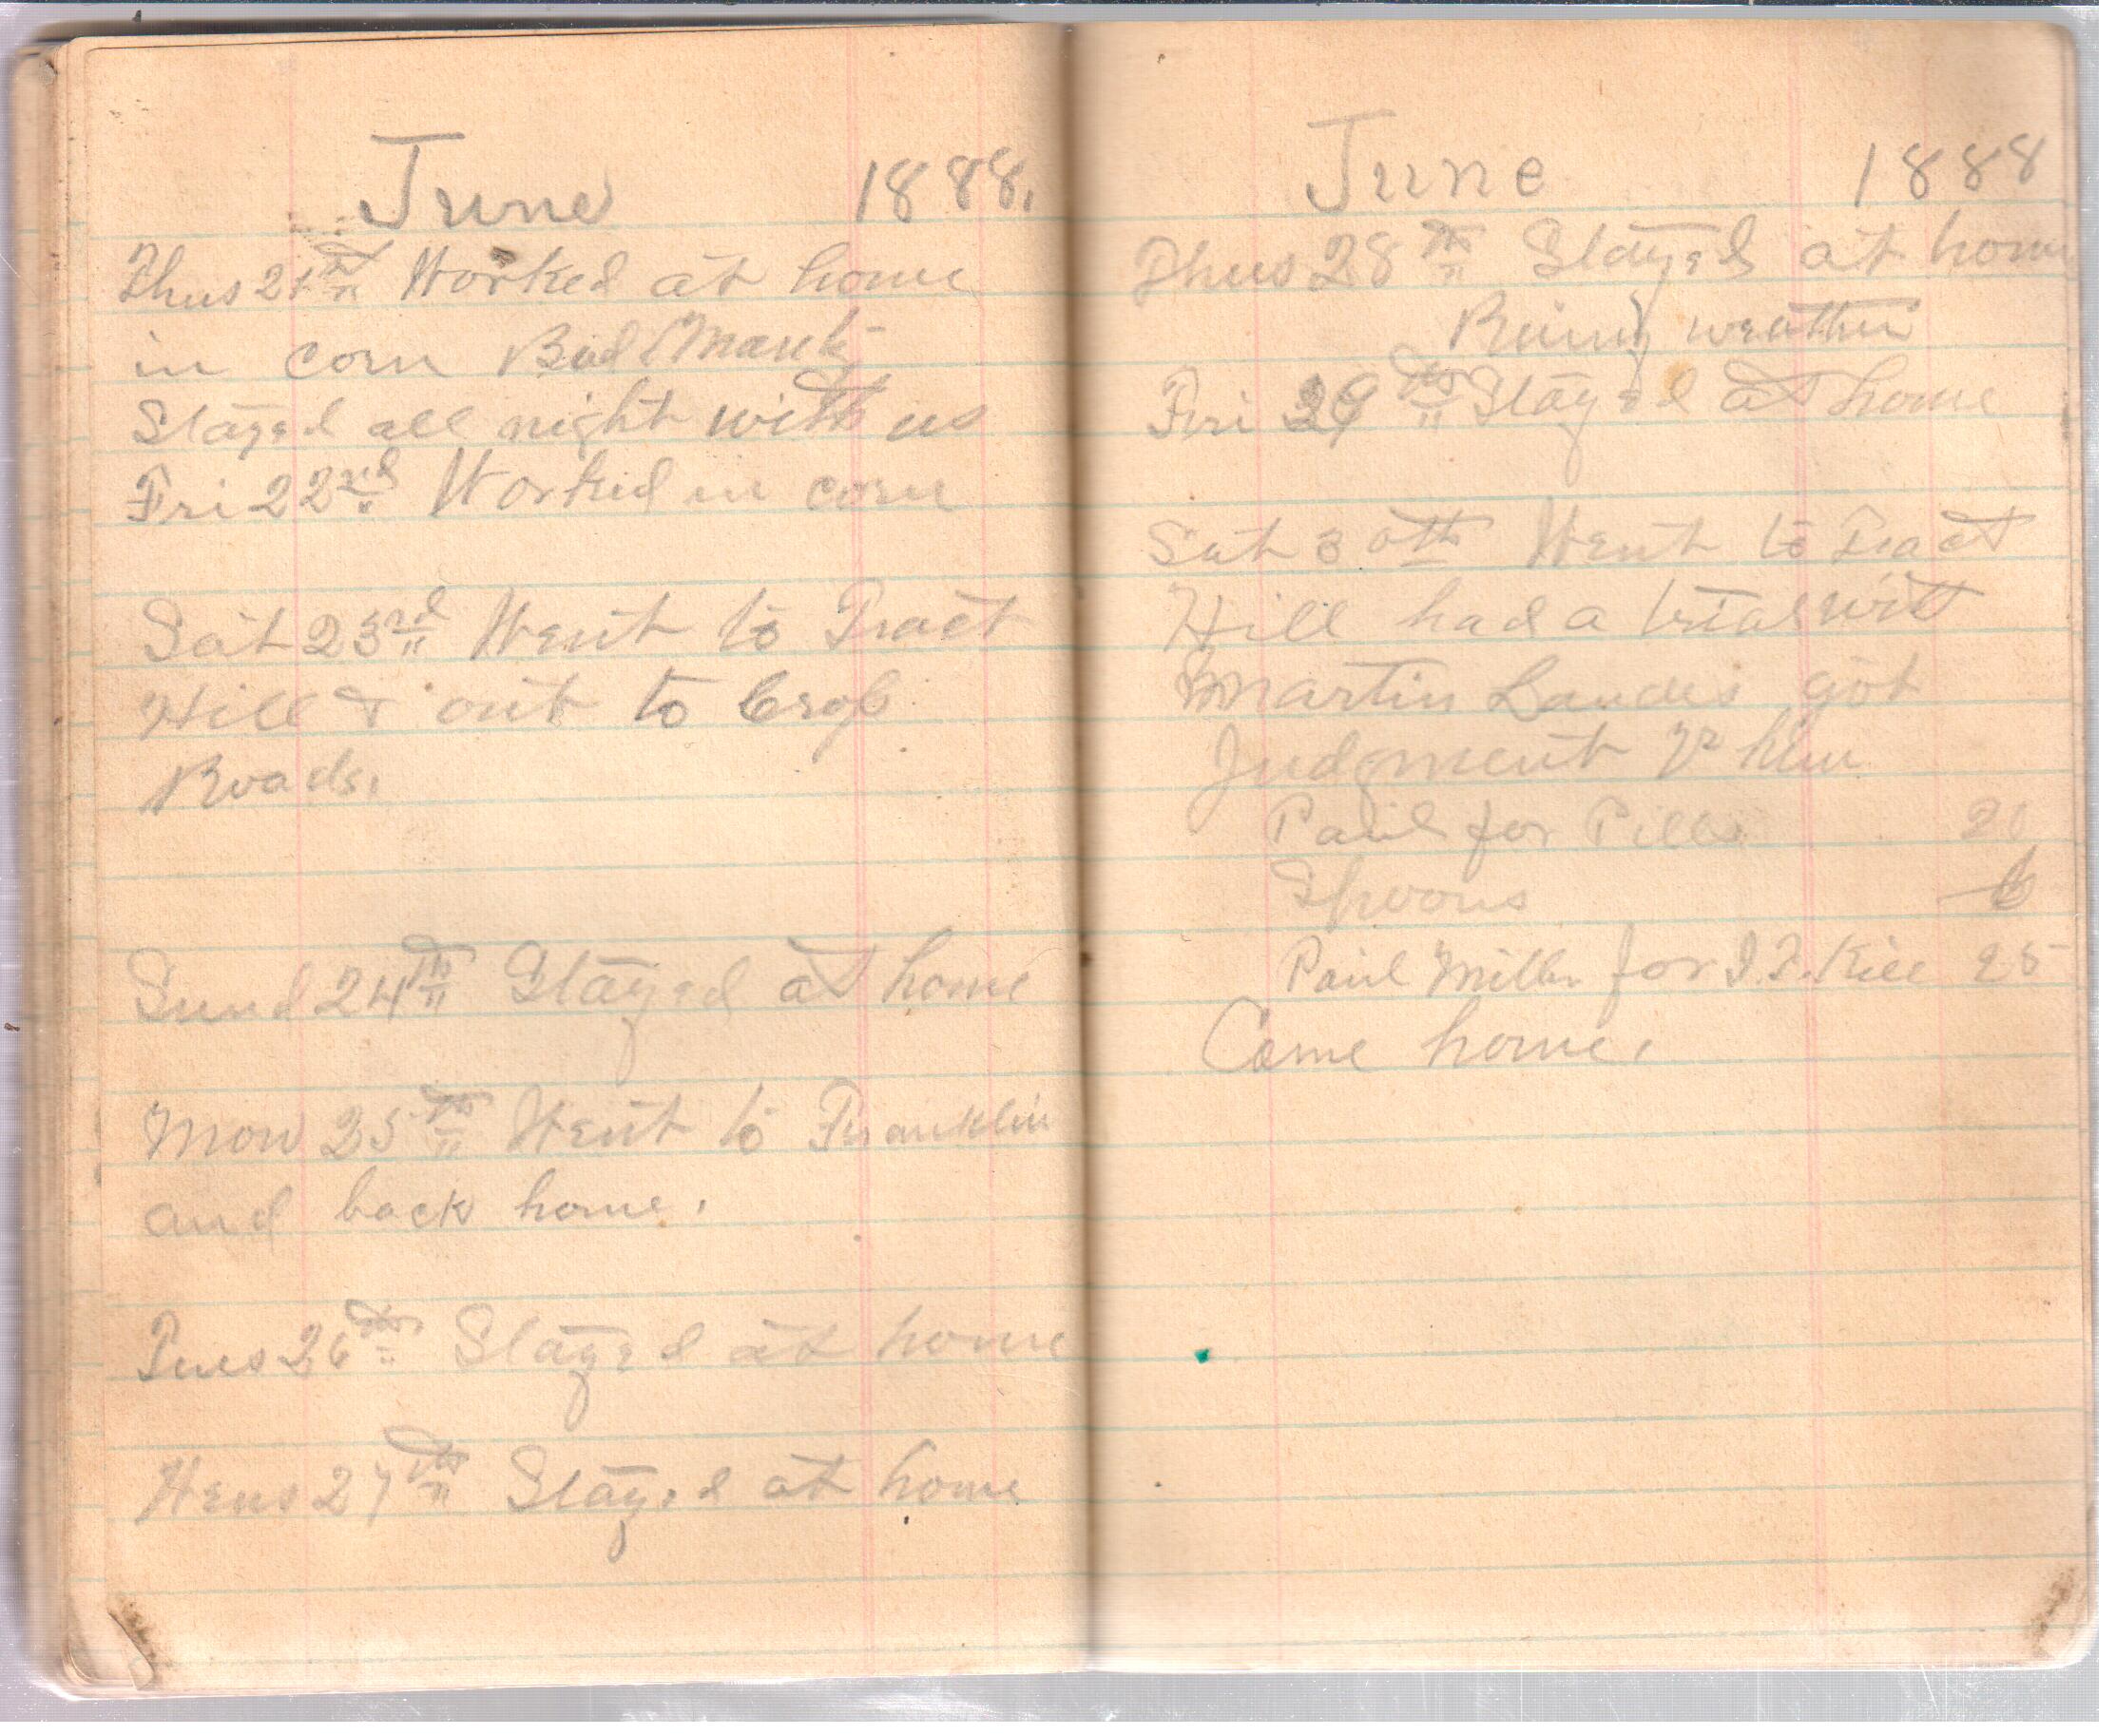 June 1888.
Thus 21th Worked at home
in corn Bud
Stayed all night with us
Fri 22nd Worked in corn
Sat 23rd Went to Tract
Hill & out to Cross
Roads.
Sund 24th Stayed at home
Mon 25th Went to Franklin
and back home.
Tues 26th Stayed at home
Wens 27th Stayed at home
June 1888
Thus 28th Stayed at home
Rainy weather
Fri 29th Stayed at home
Sat 30th Went to Tract
Hill had a trial with
Martin Landes got
Judgment vs him
Paid for Pills 20
Spoons
Paid Miller for 25
Come home.